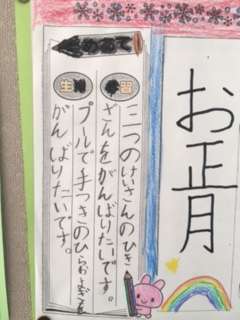 お正月
学習
三つのけいさんのひき
ざんをがんばりたいです。
生活
プールで手つきのひらおよぎを
がんばりたいです。